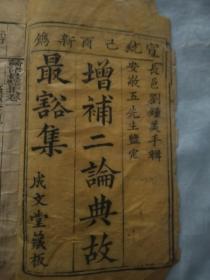 宣統己酉新鐫
長邑劉鍾美手輯
五先生鑒定
增補二論典故
最豁集
成文堂藏板